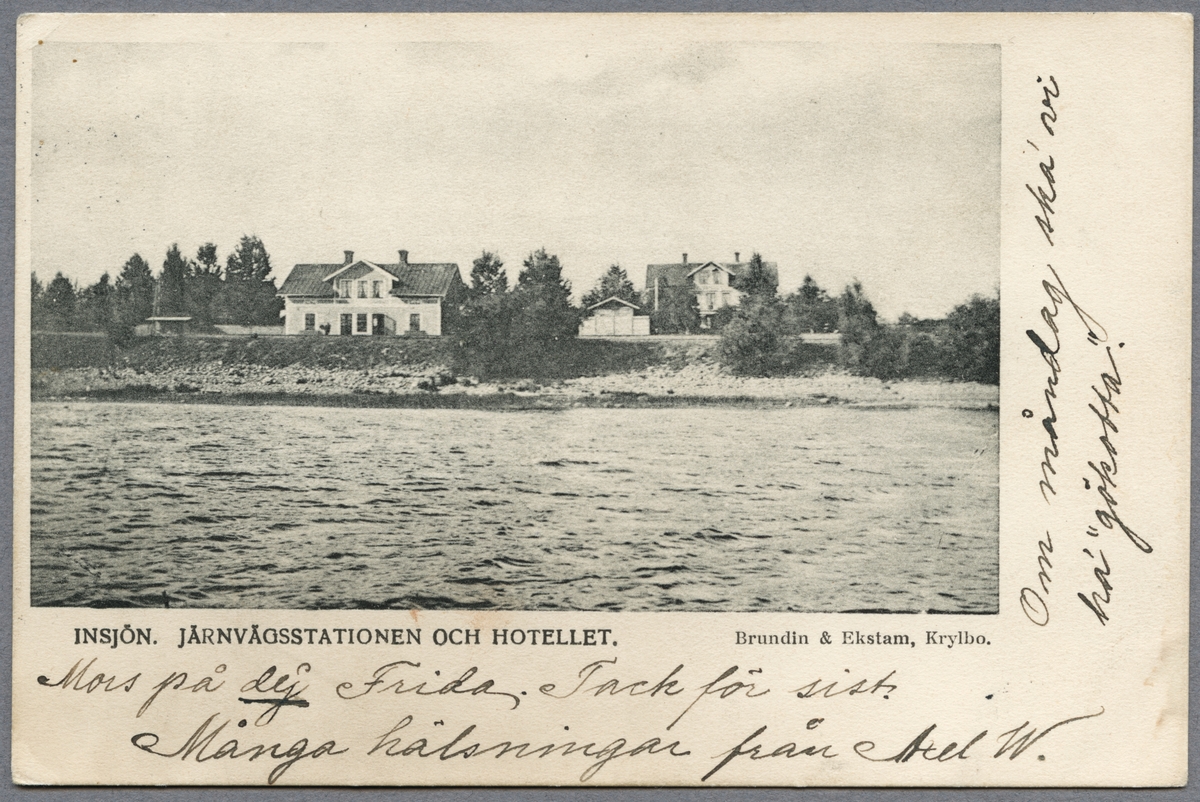 INSJÖN. JÄRNVÄGSSTATIONEN OCH HOTELLET.
Brundin & Ekstam, Krylbo.
Mors på dej Frida. Tack för sist.
Många hälsningar från Axel W.
Om måndag ska' vi
ha' "gökotta".